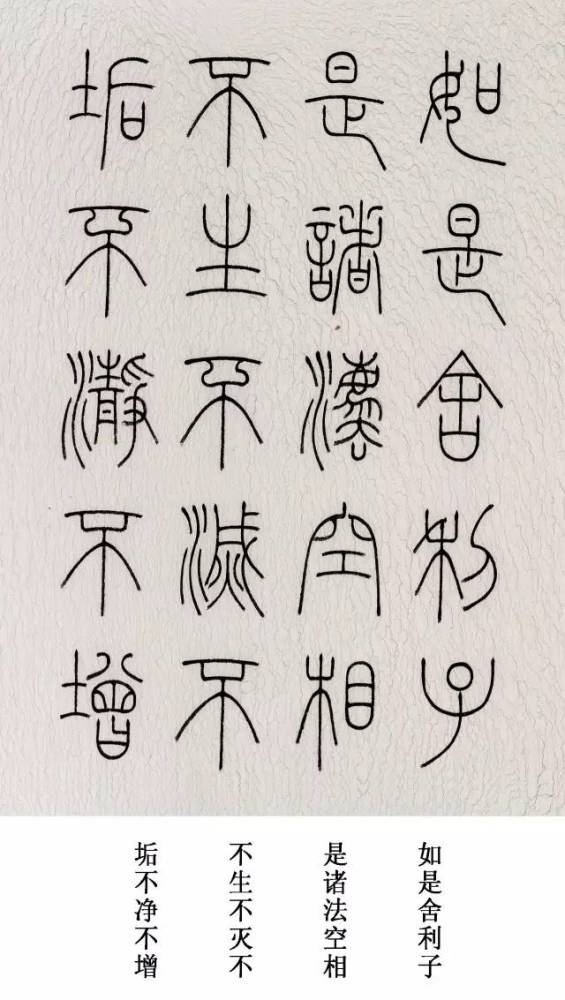 如是舍利子
是諸灋空相
不生不滅不
垢不瀞不增
如是舍利子
是诸法空相
不生不灭不
垢不净不增